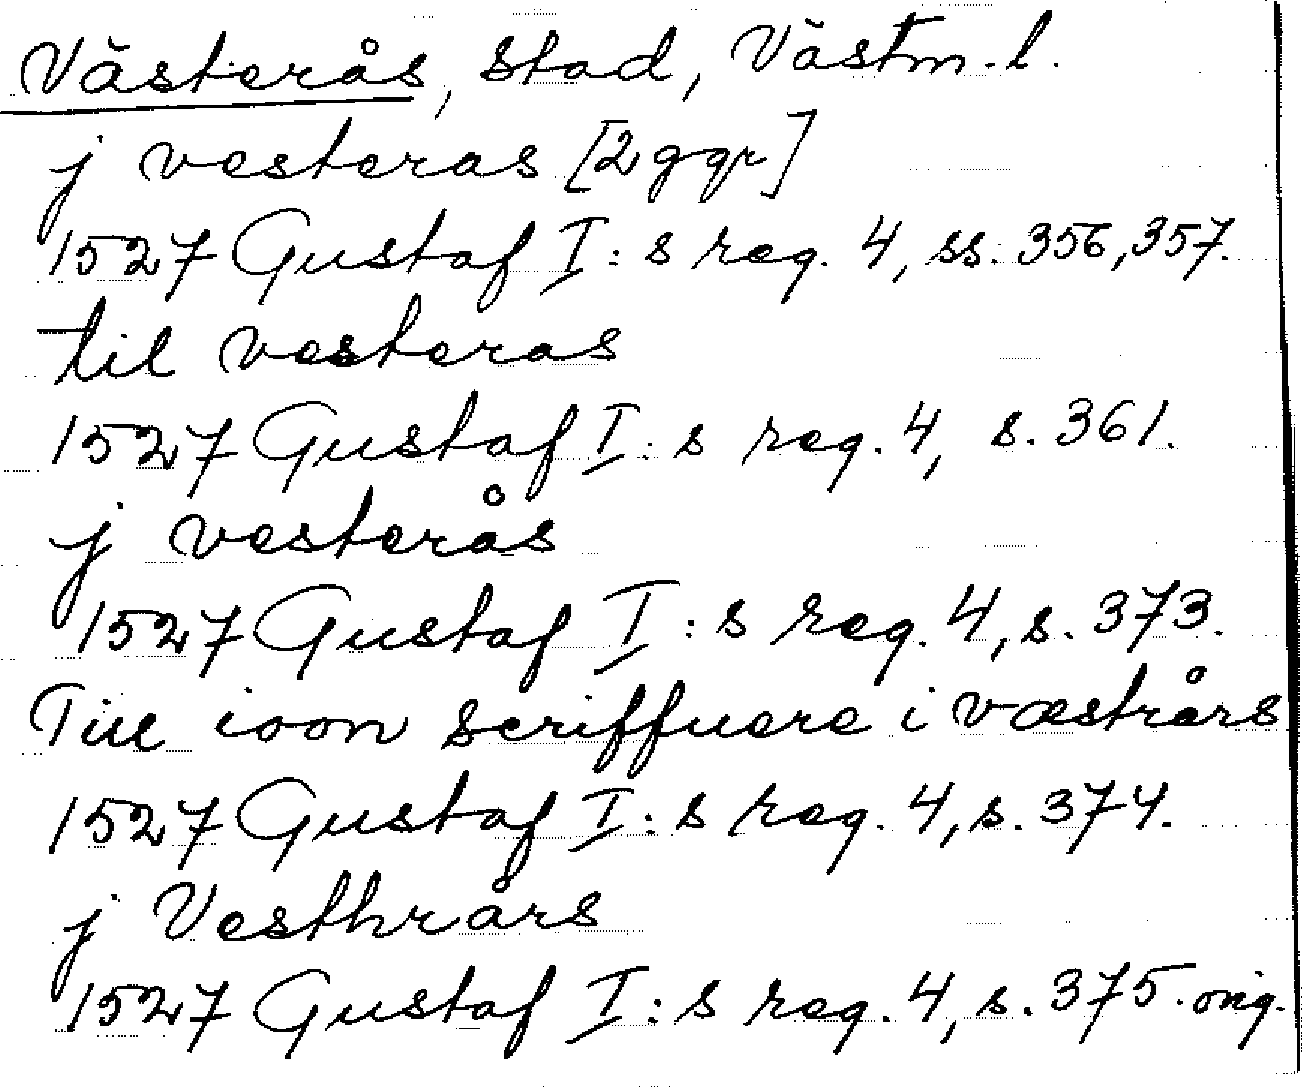 Västerås, stad, Västm. l.
j vesteras [2 ggr]
1527 Gustaf I:s reg. 4, ss. 356, 357.
til vesteras
1527 Gustaf I:s reg. 4, s. 361.
j vesterås
1527 Gustaf I:s reg. 4, s. 373.
Till ioon scriffuere i væstrårs
1527 Gustaf I:s reg. 4, s. 374.
j Vesthrårs
1527 Gustaf I:s reg. 4, s. 375. orig.